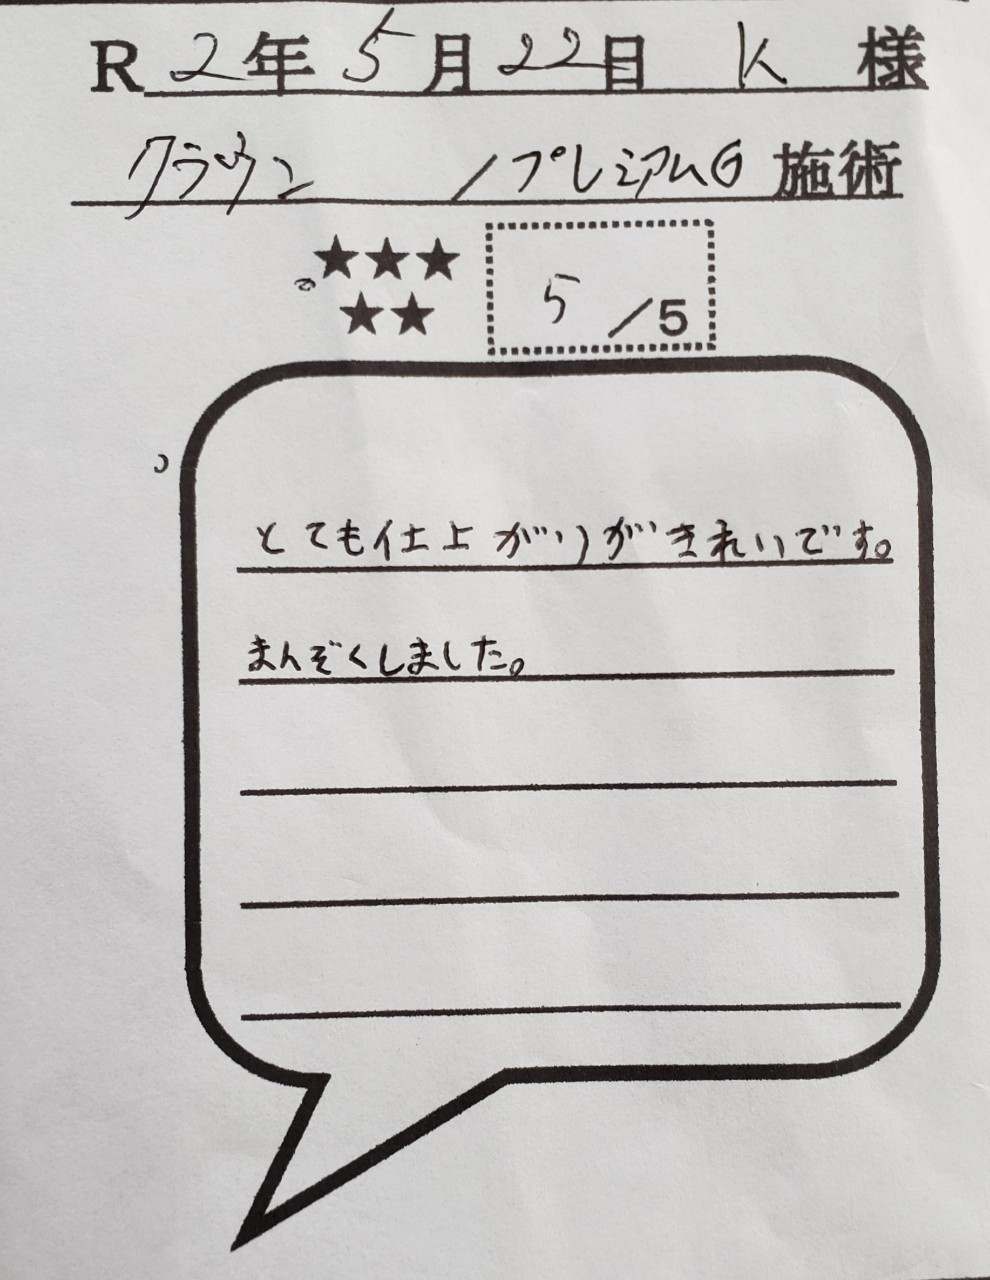 R 2年 5月 22日 K 様
クラウン /プレミアムG 施術
★★★
★★
5 /5
とても仕上がりがきれいです。
まんぞくしました。